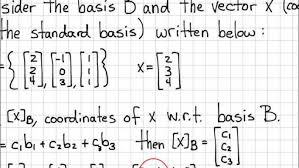 sider the basis D and the vector X (co
the standard basis) written below :
= { [2 2 4], [-1 0 3], [1 1 1] }   X = [2 3 4]
[X]B, coordinates of X w.r.t. basis B.
= c1b1 + c2b2 + c3b3   then [X]B = [c1 c2 c3]